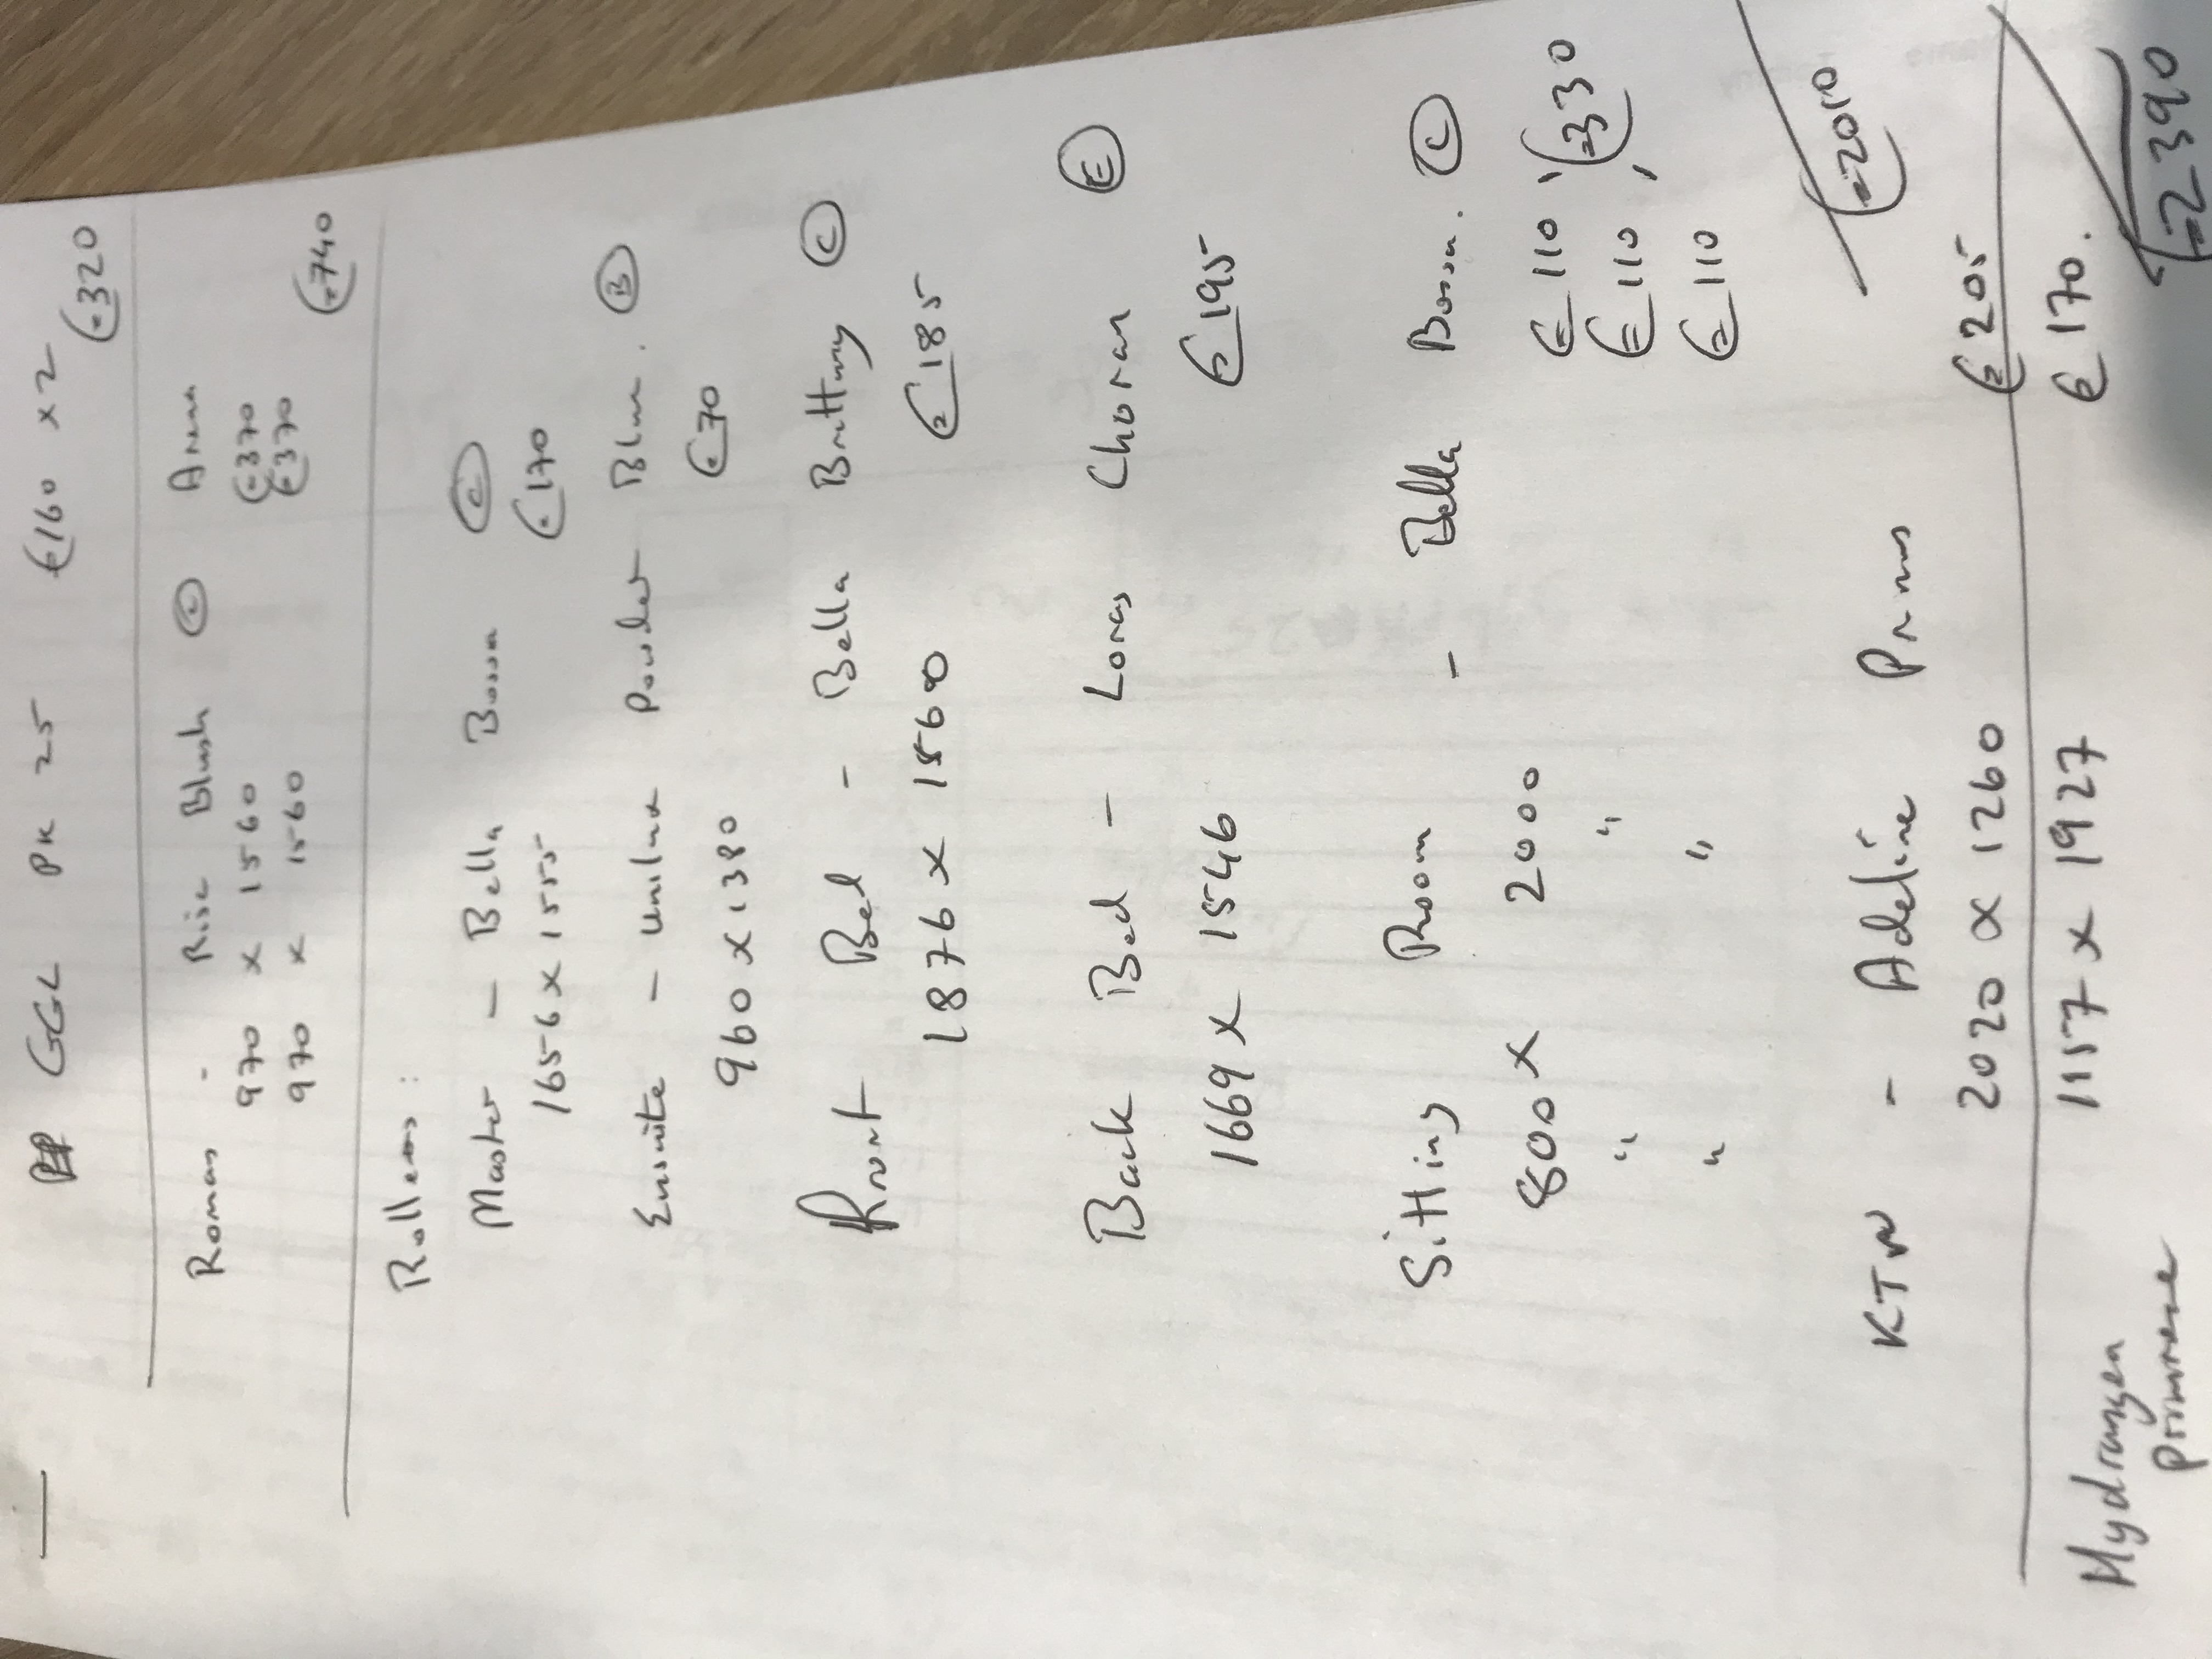 GGL PK 25 €160 x 2
€320
Romas - Rise Blush C Arena
970 x 1560 €370
970 x 1560 €370
€740
Rollers:
Master - Bella Bossa C
1656 x 1555 €170
Ensuite - Unilux Powder Blue. B
960 x 1380 €70
Front Bed - Bella Brittany C
1876 x 1560 €185
Back Bed - Loras Choran E
1669 x 1546 €195
Sitting Room - Bella Bossa. C
800 x 2000 €110, €330
" " €110,
" " €110
€2010
KTN - Adeline
2020 x 1260 €205
1157 x 1927 €170.
Hydrangea
€2390